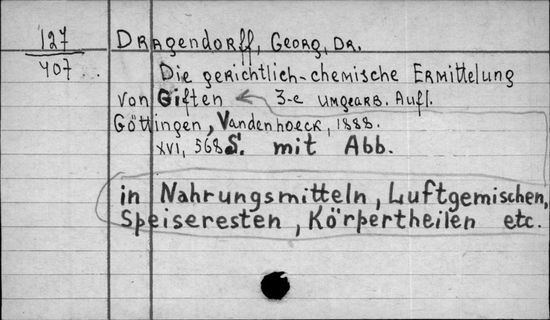 127
407
Dragendorff, Georg, Dr.
Die gerichtlich-chemische Ermittelung
von Giften 3-e umgearb. Aufl.
Göttingen, Vandenhoeck, 1888.
XVI, 568 S. mit Abb.
in Nahrungsmitteln, Luftgemischen,
Speiseresten, Körpertheilen etc.